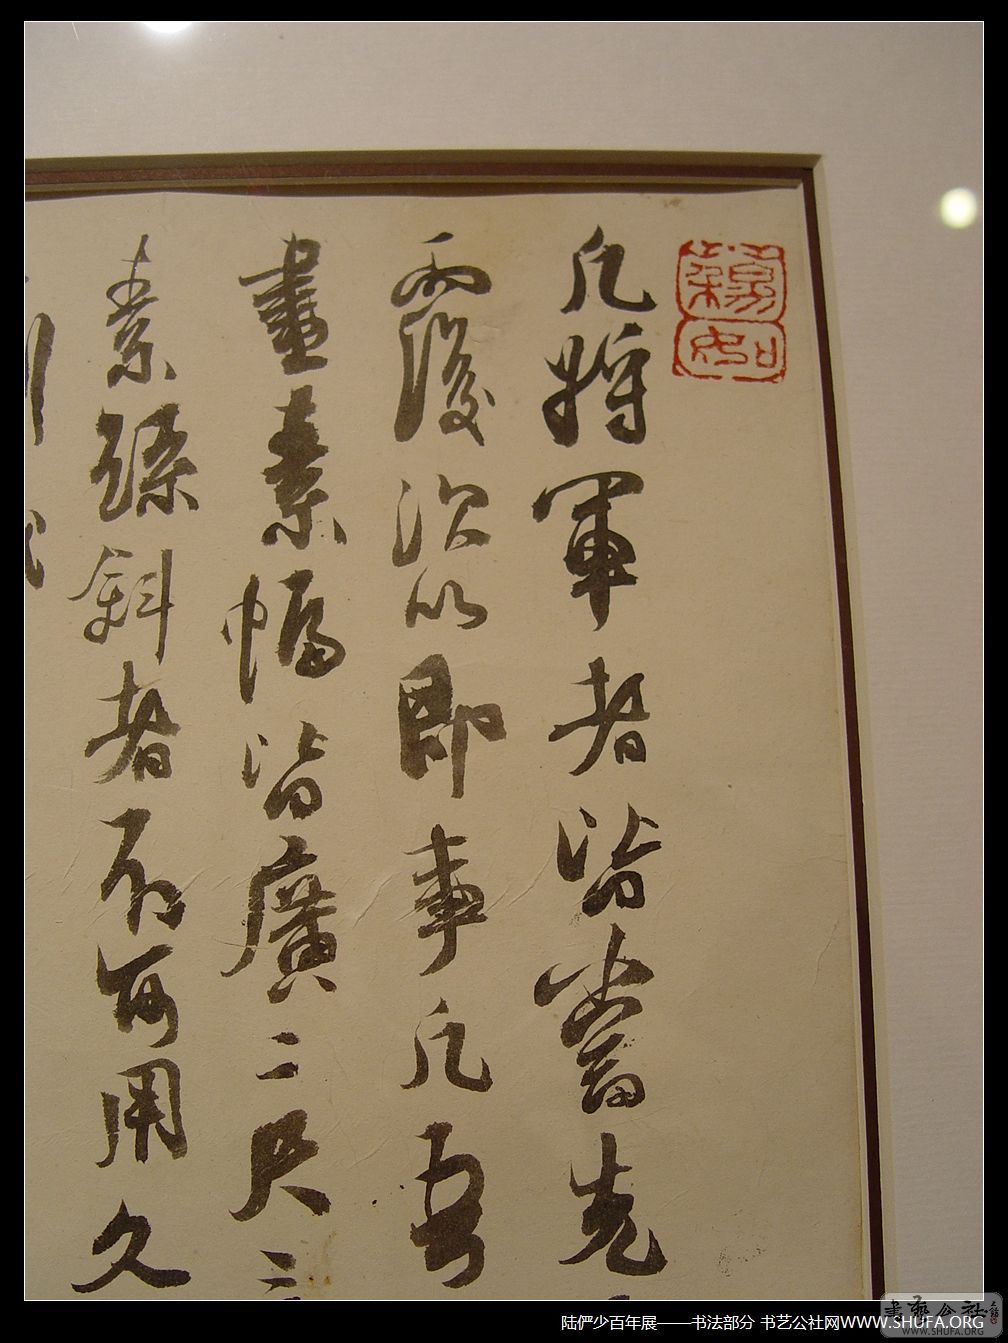 凡將軍者皆當先
而後次以即事凡吾
畫素幅皆廣二尺三
素絲斜者不可用久
陆俨少百年展——书法部分 书艺公社网WWW.SHUFA.ORG
书艺公社
WWW.SHUFA.ORG